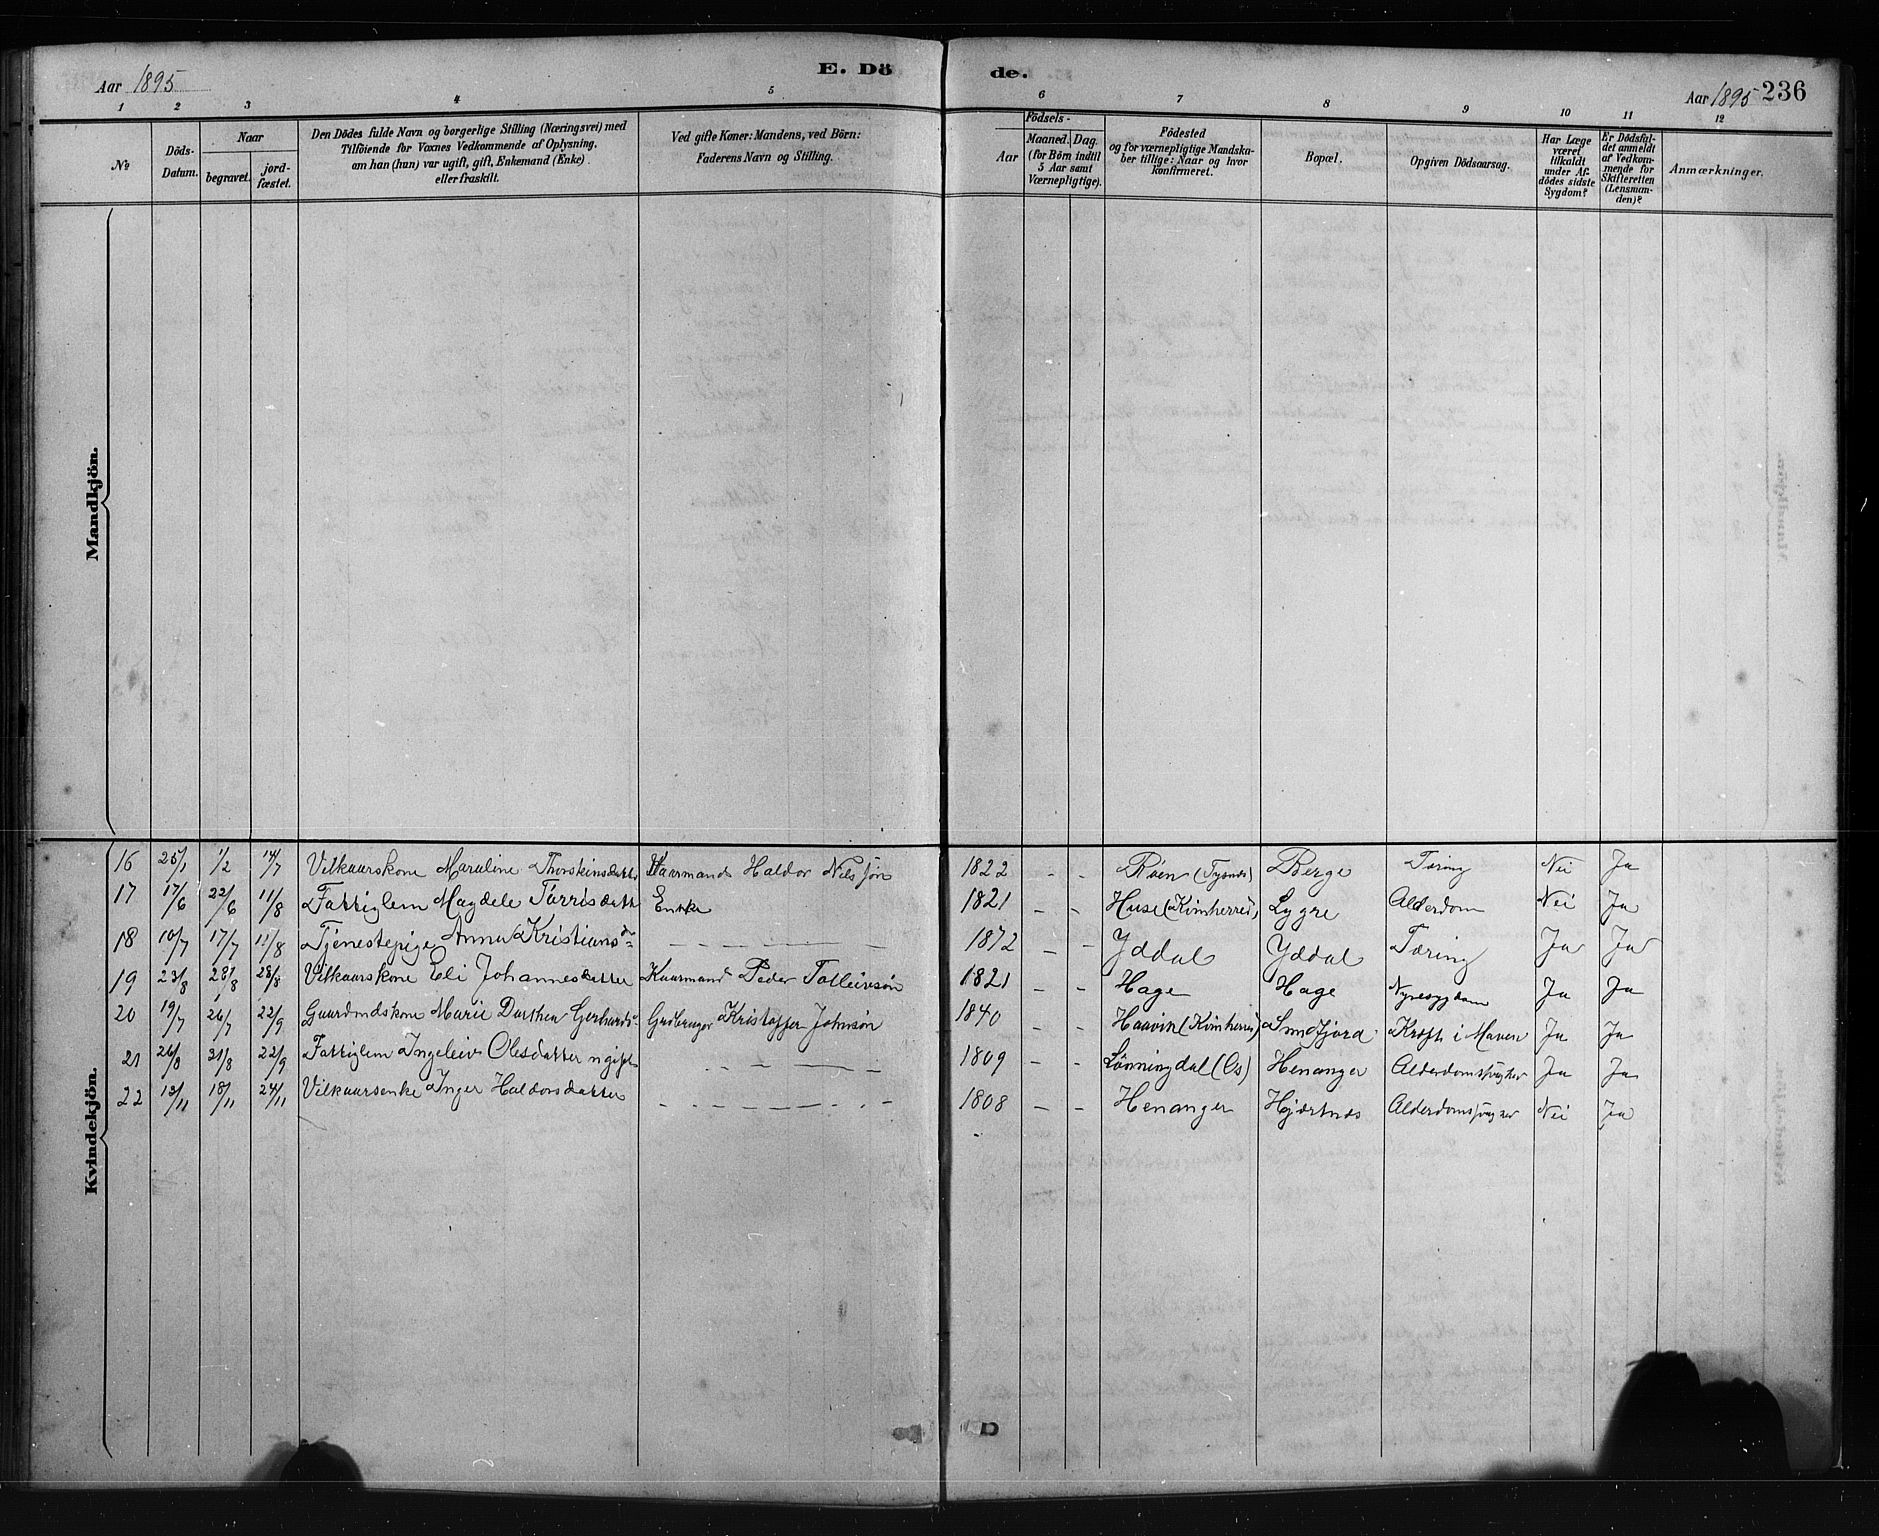 E. Dö de.
Aar 1895
Aar 1895 236
1 2 3 4 5 6 7 8 9 10 11 12
No
Döds-Datum.
Naar
begravet.
jord-fæstet.
Den Dödes fulde Navn og borgerlige Stilling (Næringsvei) med
Tilföiende for Voxnes Vedkommende af Oplysning,
om han (hun) var ugift, gift, Enkemand (Enke)
eller fraskilt.
Ved gifte Koner: Mandens, ved Börn:
Faderens Navn og Stilling.
Födsels-
Aar
Maaned. Dag.
(for Börn indtil
5 Aar samt
Værnepligtige).
Födested
og for værnepligtige Mandska-
ber tillige: Naar og hvor
konfirmeret.
Bopæl.
Opgiven Dödsaarsag.
Har Læge
været
tilkaldt
under Af-
dödes sidste
Sygdom?
Er Dödsfal-
det anmeldt
af Vedkom-
mende for
Skifteretten
(Lensman-
den)?
Anmærkninger.
Mandkjön.
Kvindekjön.
16 25/1 1/2 14/7 Vilkaarskone Maraline Thorskinsdatter Kaarmand Haldor Nilssön 1822 - - Röen (Tysnes) Berge Tæring Nei Ja
17 17/6 22/6 11/8 Fattiglem Magdele Torrisdatt Enke 1821 - - Huse (Kvinherred) Lygre Alderdom Nei Ja
18 10/7 17/7 11/8 Tjenestepige Anna Kristiansdr - - - 1872 - - Yddal Yddal Tæring Ja Ja
19 23/8 28/8 28/8 Vilkaarskone Eli Johannesdatter Kaarmand Peder Tolleivsön 1821 - - Hage Hage Nyresygdom Ja Ja
20 19/7 26/7 22/9 Gaardmdskone Marie Dorthea Gerhardsd. Grdbruger Kristoffer Johnsön 1840 - - Haavik (Kvinherred) Smdfjord Kræft i Maven Ja Ja
21 26/8 31/8 22/9 Fattiglem Ingeleiv Olesdatter ugift - - - 1809 - - Lönningdal (Os) Henanger Alderdomssvaghed Ja Ja
22 13/11 18/11 24/11 Vilkaarsenke Inger Haldorsdatter - - - 1808 - - Henanger Hjartnes Alderdomssvaghed Nei Ja
D